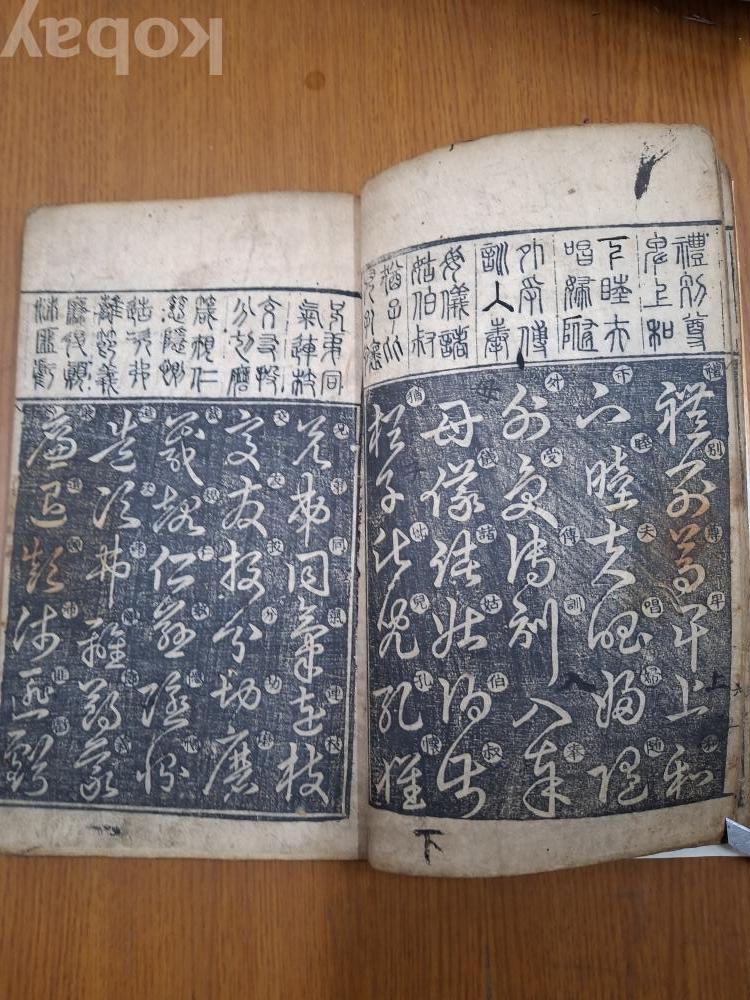 kobay
禮別尊
卑上和
下睦夫
唱婦隨
外受傅
訓入奉
母儀諸
姑伯叔
猶子比
兒孔懷
禮別尊卑上和
下睦夫唱婦隨
外受傅訓入奉
母儀諸姑伯叔
猶子比兒孔懷
下
兄弟同
氣連枝
交友投
分切磨
箴規仁
慈隱惻
造次弗
離節義
廉退顚
沛匪虧
兄弟同氣連枝
交友投分切磨
箴規仁慈隱惻
造次弗離節義
廉退顚沛匪虧